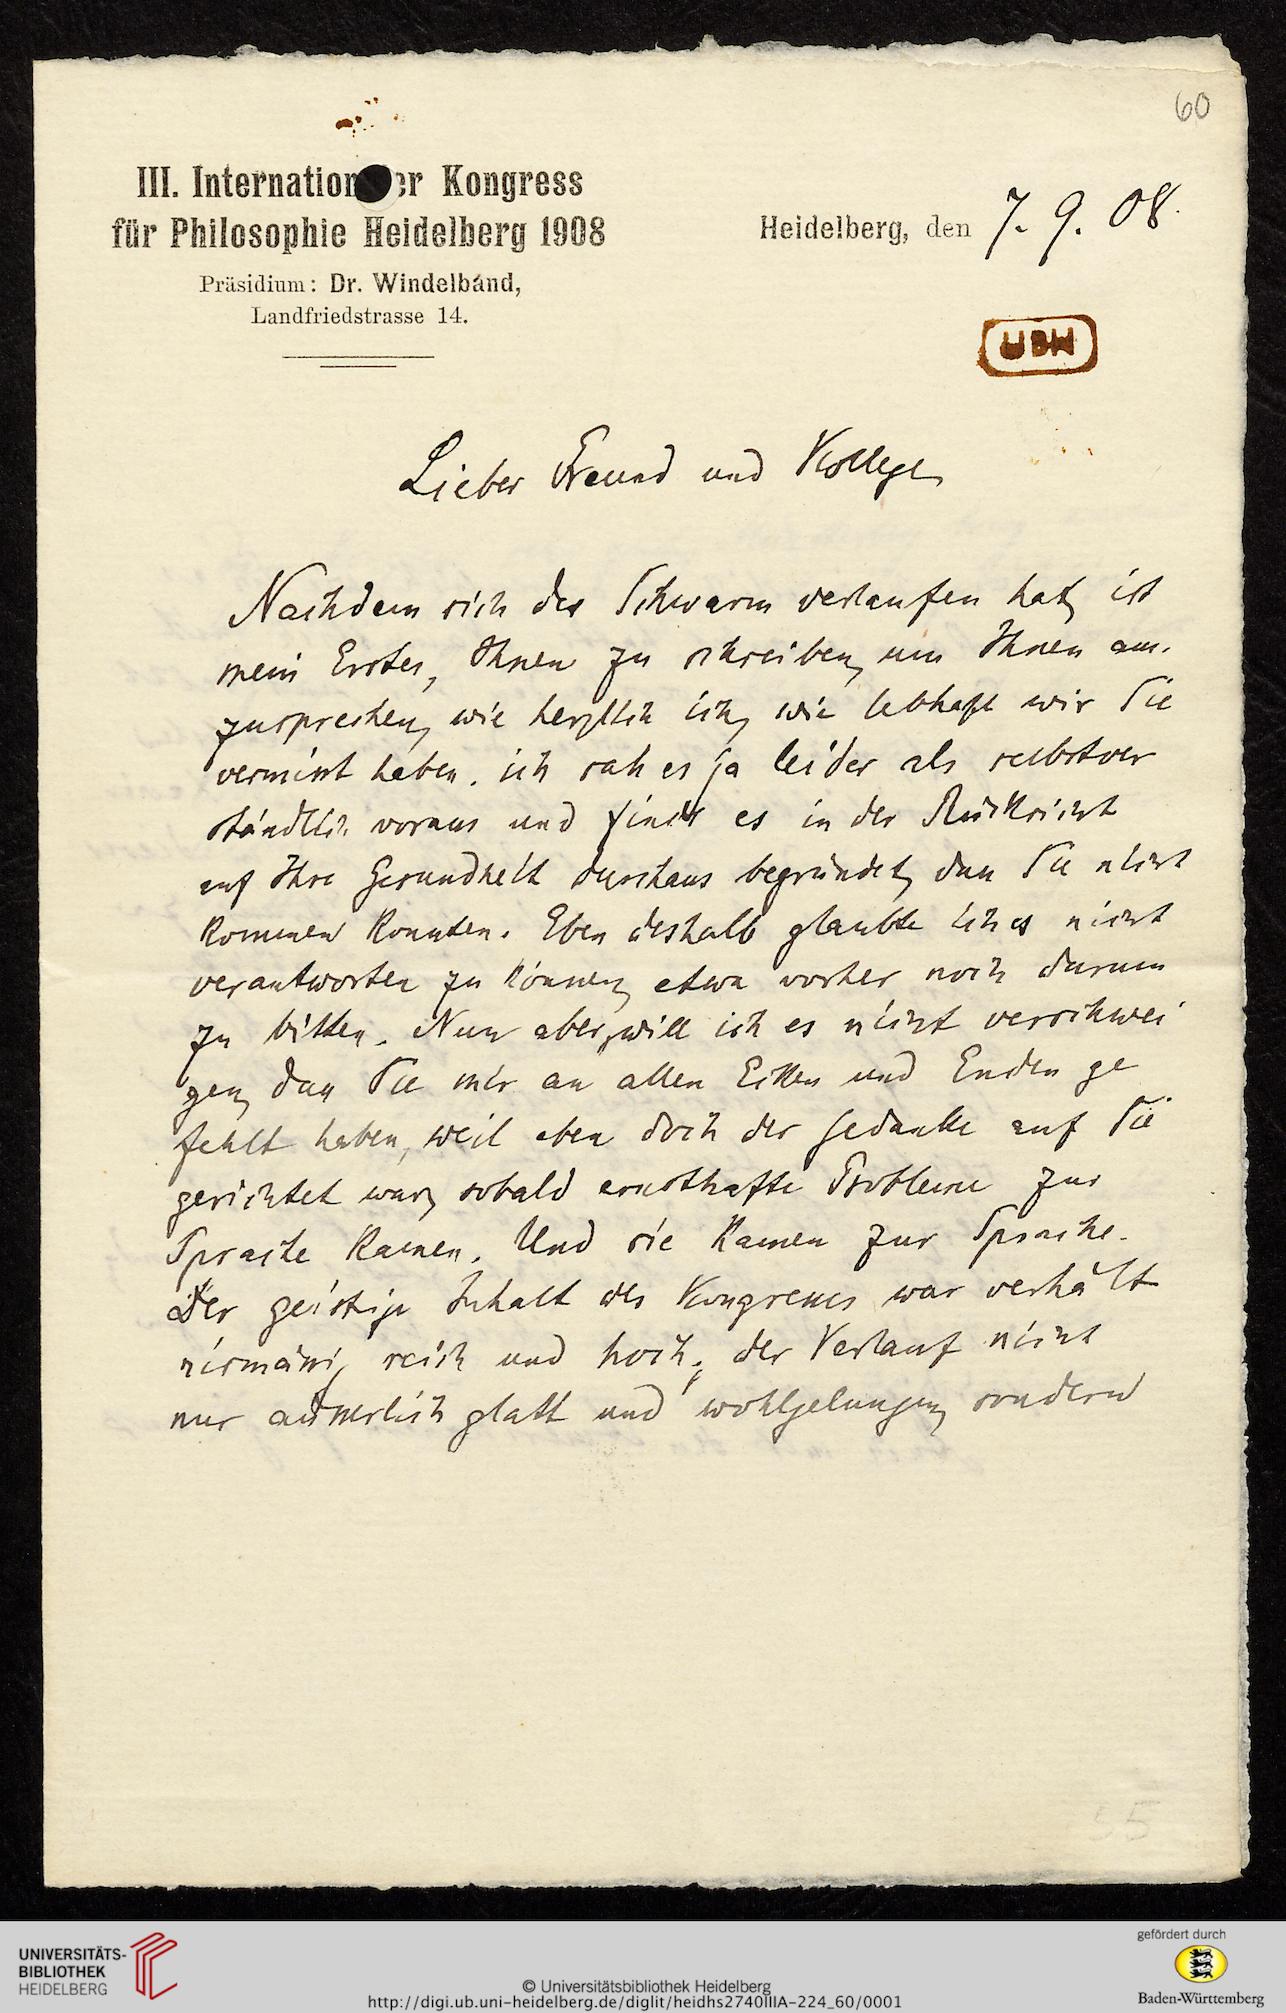 60
III. Internation er Kongress
für Philosophie Heidelberg 1908
Präsidium: Dr. Windelband,
Landfriedstrasse 14.
Heidelberg, den 7. 9. 08.
UBH
Lieber Freund und Kollege,
Nachdem sich der Schwarm verlaufen hat, ist
mein Erstes, Ihnen zu schreiben, um Ihnen aus-
zusprechen, wie herzlich ich, wie lebhaft wir Sie
vermisst haben. ich sah es ja leider als selbstver
ständlich voraus und finde es in der Rücksicht
auf Ihre Gesundheit durchaus begründet, dass Sie nicht
kommen konnten. Eben deshalb glaubte ich es nicht
verantworten zu können, etwa vorher noch darum
zu bitten. Nun aber, will ich es nicht verschwei
gen, dass Sie mir an allen Ecken und Enden ge
fehlt haben, weil eben doch der Gedanke auf Sie
gerichtet war, sobald ernsthafte Probleme zur
Sprache kamen. Und sie kamen zur Sprache.
Der geistige Inhalt des Kongresses war verhält
nismässig reich und hoch; der Verlauf nicht
nur äusserlich glatt und wohlgelungen, sondern
55
UNIVERSITÄTS-
BIBLIOTHEK
HEIDELBERG
© Universitätsbibliothek Heidelberg
http://digi.ub.uni-heidelberg.de/diglit/heidhs2740IIIA-224_60/0001
gefördert durch
Baden-Württemberg